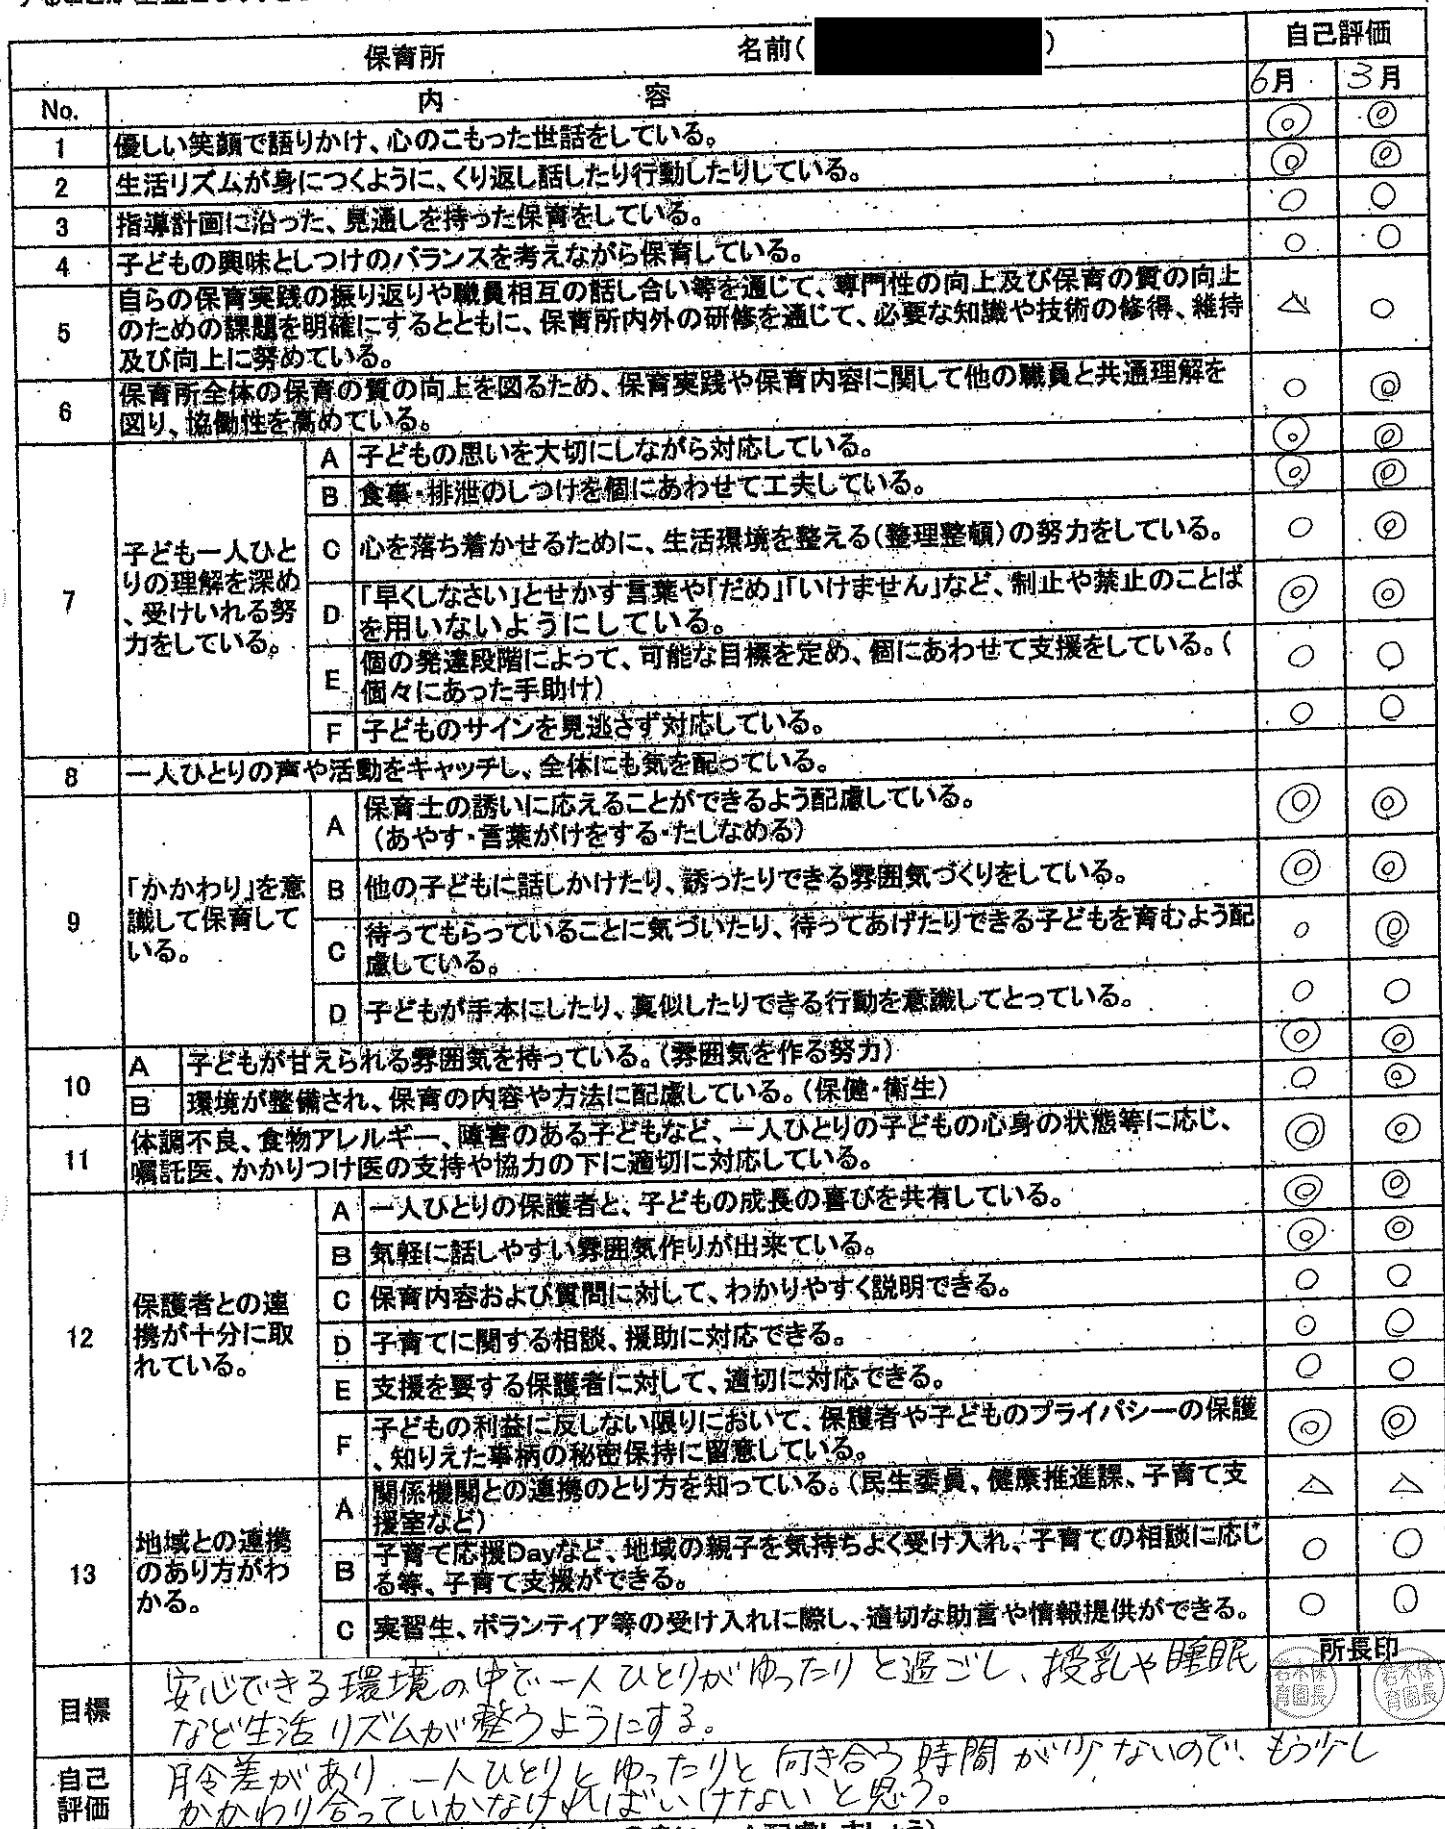 保育所 名前( ) 自己評価
No. 内 容 6月 3月
1 優しい笑顔で語りかけ、心のこもった世話をしている。 ◎ ◎
2 生活リズムが身につくように、くり返し話したり行動したりしている。 ◎ ◎
3 指導計画に沿った、見通しを持った保育をしている。 ○ ○
4 子どもの興味としつけのバランスを考えながら保育している。 ○ ○
自らの保育実践の振り返りや職員相互の話し合い等を通じて、専門性の向上及び保育の質の向上
5 のための課題を明確にするとともに、保育所内外の研修を通じて、必要な知識や技術の修得、維持 △ ○
及び向上に努めている。
保育所全体の保育の質の向上を図るため、保育実践や保育内容に関して他の職員と共通理解を
6 図り、協働性を高めている。 ○ ◎
7
子ども一人ひと
りの理解を深め
、受けいれる努
力をしている。
A 子どもの思いを大切にしながら対応している。 ◎ ◎
B 食事・排泄のしつけを個にあわせて工夫している。 ◎ ◎
C 心を落ち着かせるために、生活環境を整える(整理整頓)の努力をしている。 ○ ◎
「早くしなさい」とせかす言葉や「だめ」「いけません」など、制止や禁止のことば
D を用いないようにしている。 ◎ ◎
個の発達段階によって、可能な目標を定め、個にあわせて支援をしている。(
E 個々にあった手助け) ○ ○
F 子どものサインを見逃さず対応している。 ○ ○
8 一人ひとりの声や活動をキャッチし、全体にも気を配っている。
9
「かかわり」を意
識して保育して
いる。
A 保育士の誘いに応えることができるよう配慮している。 ◎ ◎
(あやす・言葉がけをする・たしなめる)
B 他の子どもに話しかけたり、誘ったりできる雰囲気づくりをしている。 ◎ ◎
待ってもらっていることに気づいたり、待ってあげたりできる子どもを育むよう配
C 慮している。 ○ ◎
D 子どもが手本にしたり、真似したりできる行動を意識してとっている。 ○ ○
10
A 子どもが甘えられる雰囲気を持っている。(雰囲気を作る努力) ◎ ◎
B 環境が整備され、保育の内容や方法に配慮している。(保健・衛生) ○ ◎
体調不良、食物アレルギー、障害のある子どもなど、一人ひとりの子どもの心身の状態等に応じ、
11 嘱託医、かかりつけ医の支持や協力の下に適切に対応している。 ◎ ◎
12
保護者との連
携が十分に取
れている。
A 一人ひとりの保護者と、子どもの成長の喜びを共有している。 ◎ ◎
B 気軽に話しやすい雰囲気作りが出来ている。 ◎ ◎
C 保育内容および質問に対して、わかりやすく説明できる。 ○ ○
D 子育てに関する相談、援助に対応できる。 ○ ○
E 支援を要する保護者に対して、適切に対応できる。 ○ ○
子どもの利益に反しない限りにおいて、保護者や子どものプライバシーの保護
F 、知りえた事柄の秘密保持に留意している。 ◎ ◎
13
地域との連携
のあり方がわ
かる。
関係機関との連携のとり方を知っている。(民生委員、健康推進課、子育て支
A 援室など) △ △
子育て応援Dayなど、地域の親子を気持ちよく受け入れ、子育ての相談に応じ
B る等、子育て支援ができる。 ○ ○
C 実習生、ボランティア等の受け入れに際し、適切な助言や情報提供ができる。 ○ ○
所長印
目標
安心できる環境の中で一人ひとりがゆったりと過ごし、授乳や睡眠
など生活リズムが整うようにする。
自己
評価
月令差があり、一人ひとりとゆったりと向き合う時間が少ないので、もう少し
かかわり合っていかなければいけないと思う。